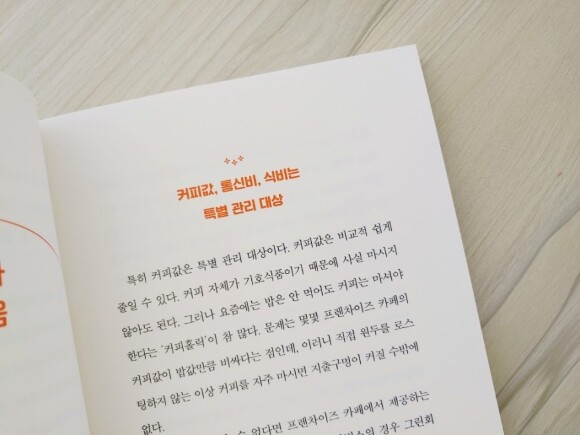 커피값, 통신비, 식비는
특별 관리 대상
특히 커피값은 특별 관리 대상이다. 커피값은 비교적 쉽게
줄일 수 있다. 커피 자체가 기호식품이기 때문에 사실 마시지
않아도 된다. 그러나 요즘에는 밥은 안 먹어도 커피는 마셔야
한다는 '커피홀릭'이 참 많다. 문제는 몇몇 프랜차이즈 카페의
커피값이 밥값만큼 비싸다는 점인데, 이러니 직접 원두를 로스
팅하지 않는 이상 커피를 자주 마시면 지출구멍이 커질 수밖에
없다.
수 없다면 프랜차이즈 카페에서 제공하는
경우 그린회